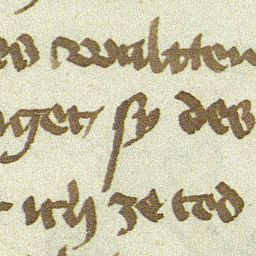 es waltten
nget sy des
ich ze tod